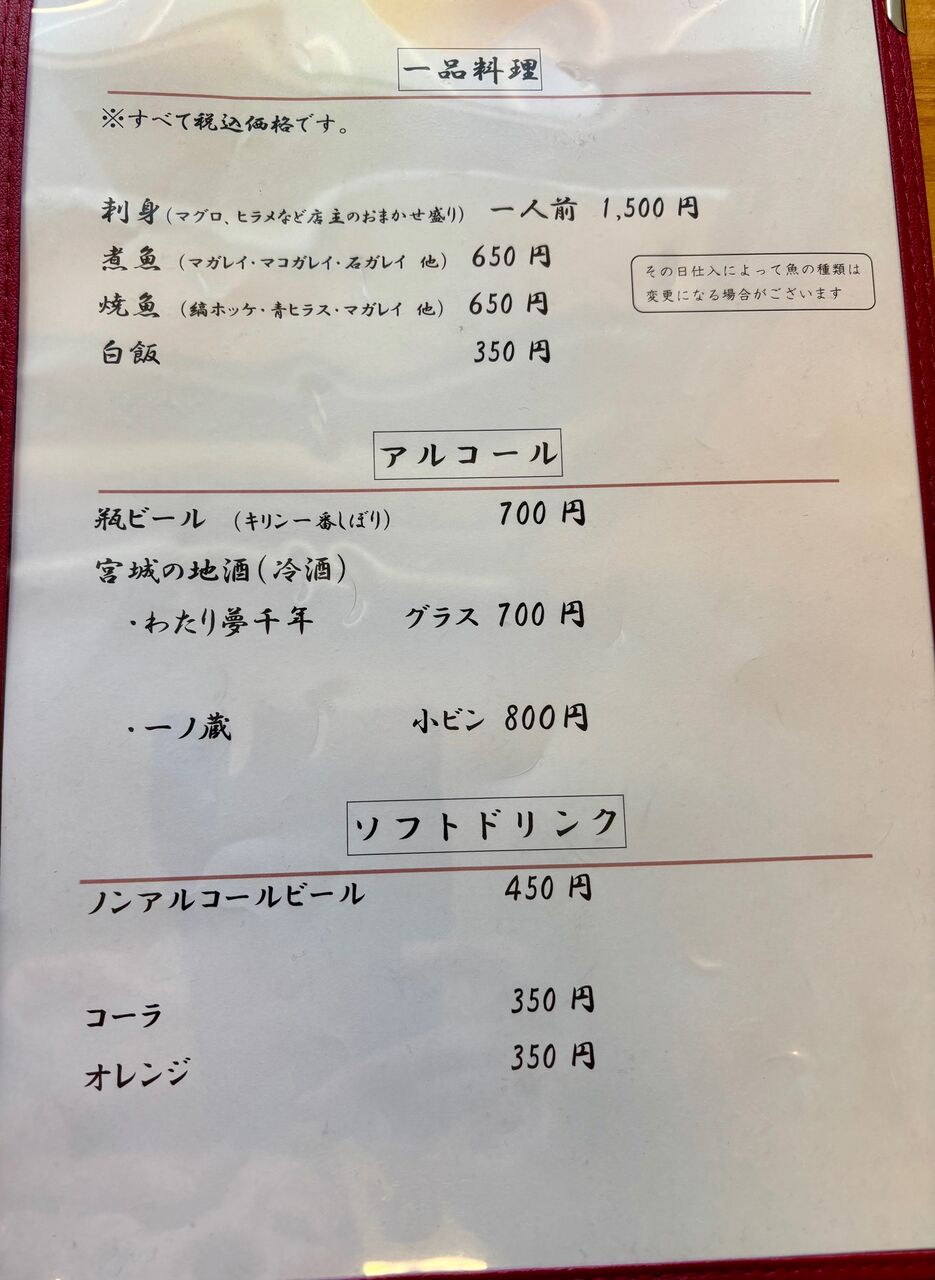 一品料理
※すべて税込価格です。
刺身(マグロ、ヒラメなど店主のおまかせ盛り) 一人前 1,500 円
煮魚 (マガレイ・マコガレイ・石ガレイ 他) 650 円
その日仕入によって魚の種類は
変更になる場合がございます
焼魚 (縞ホッケ・青ヒラス・マガレイ 他) 650 円
白飯 350 円
アルコール
瓶ビール (キリン一番しぼり) 700 円
宮城の地酒(冷酒)
・わたり夢千年 グラス 700 円
・一ノ蔵 小ビン 800円
ソフトドリンク
ノンアルコールビール 450 円
コーラ 350 円
オレンジ 350 円